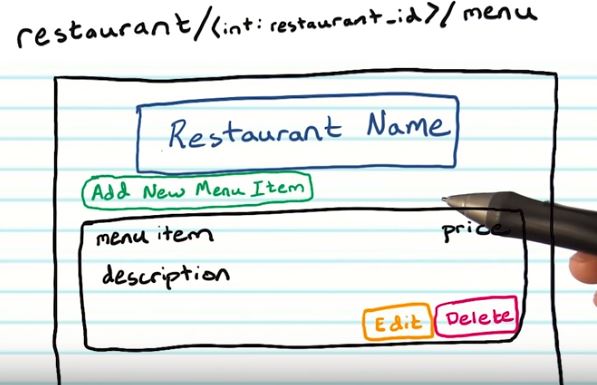 restaurant/<int:restaurant_id>/menu
Restaurant Name
Add New Menu Item
menu item price
description
Edit Delete